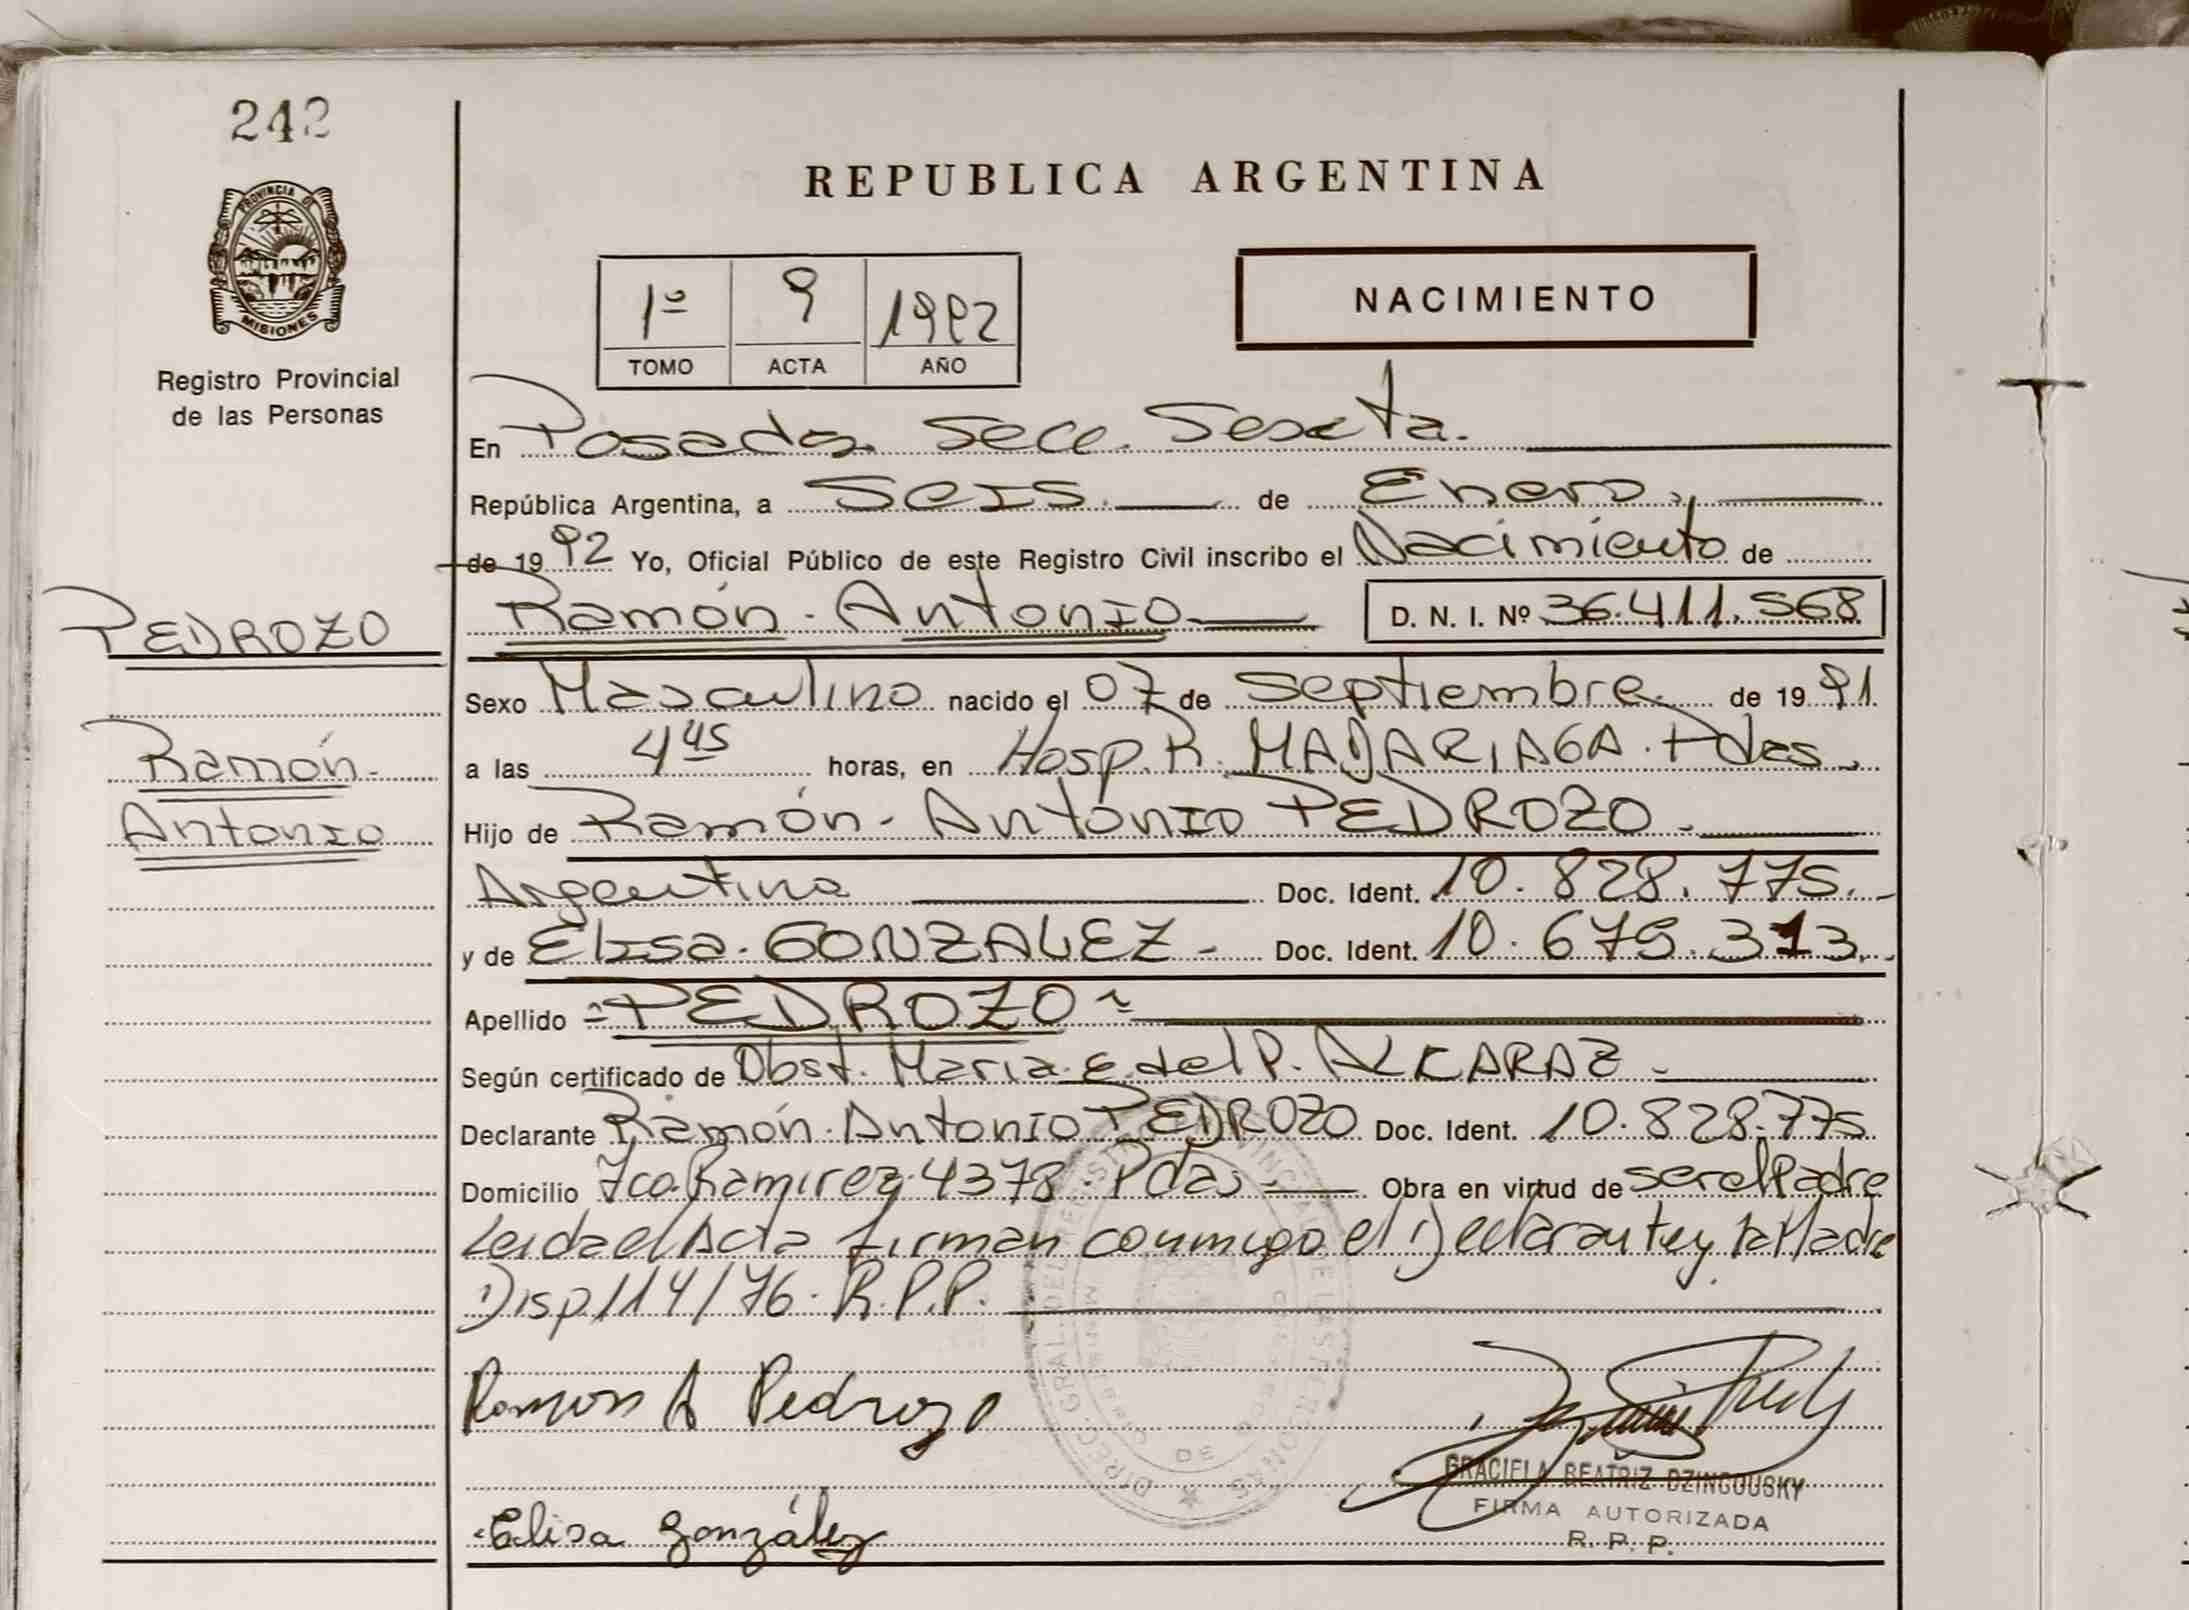 242
PROVINCIA DE
MISIONES
Registro Provincial
de las Personas
PEDROZO
Ramón
Antonio
REPUBLICA ARGENTINA
1º 9 1992
TOMO ACTA AÑO
NACIMIENTO
En Posadas. Secc. Sexta.
República Argentina, a Seis. de Enero,
de 1992 Yo, Oficial Público de este Registro Civil inscribo el Nacimiento de
Ramón - Antonio D. N. I. Nº 36.411.568
Sexo Masculino nacido el 07 de Septiembre. de 1991.
a las 4 45 horas, en Hosp. R. MADARIAGA. Pdas.
Hijo de Ramón - Antonio PEDROZO.
Argentina Doc. Ident. 10.828.775.-
y de Elisa. GONZALEZ - Doc. Ident. 10.679.313.-
Apellido = PEDROZO =
Según certificado de Obst. Maria. E. del P. ALCARAZ -
Declarante Ramón. Antonio PEDROZO Doc. Ident. 10.828.775
Domicilio Fco. Ramirez 4378. Pdas. Obra en virtud de ser el Padre
Leida el Acta firman conmigo el Declarante y la Madre
Disp. 114/76. R.P.P.
Ramon A Pedrozo
GRACIELA BEATRIZ DZINGOUSKY
FIRMA AUTORIZADA
R. P. P.
Elisa González